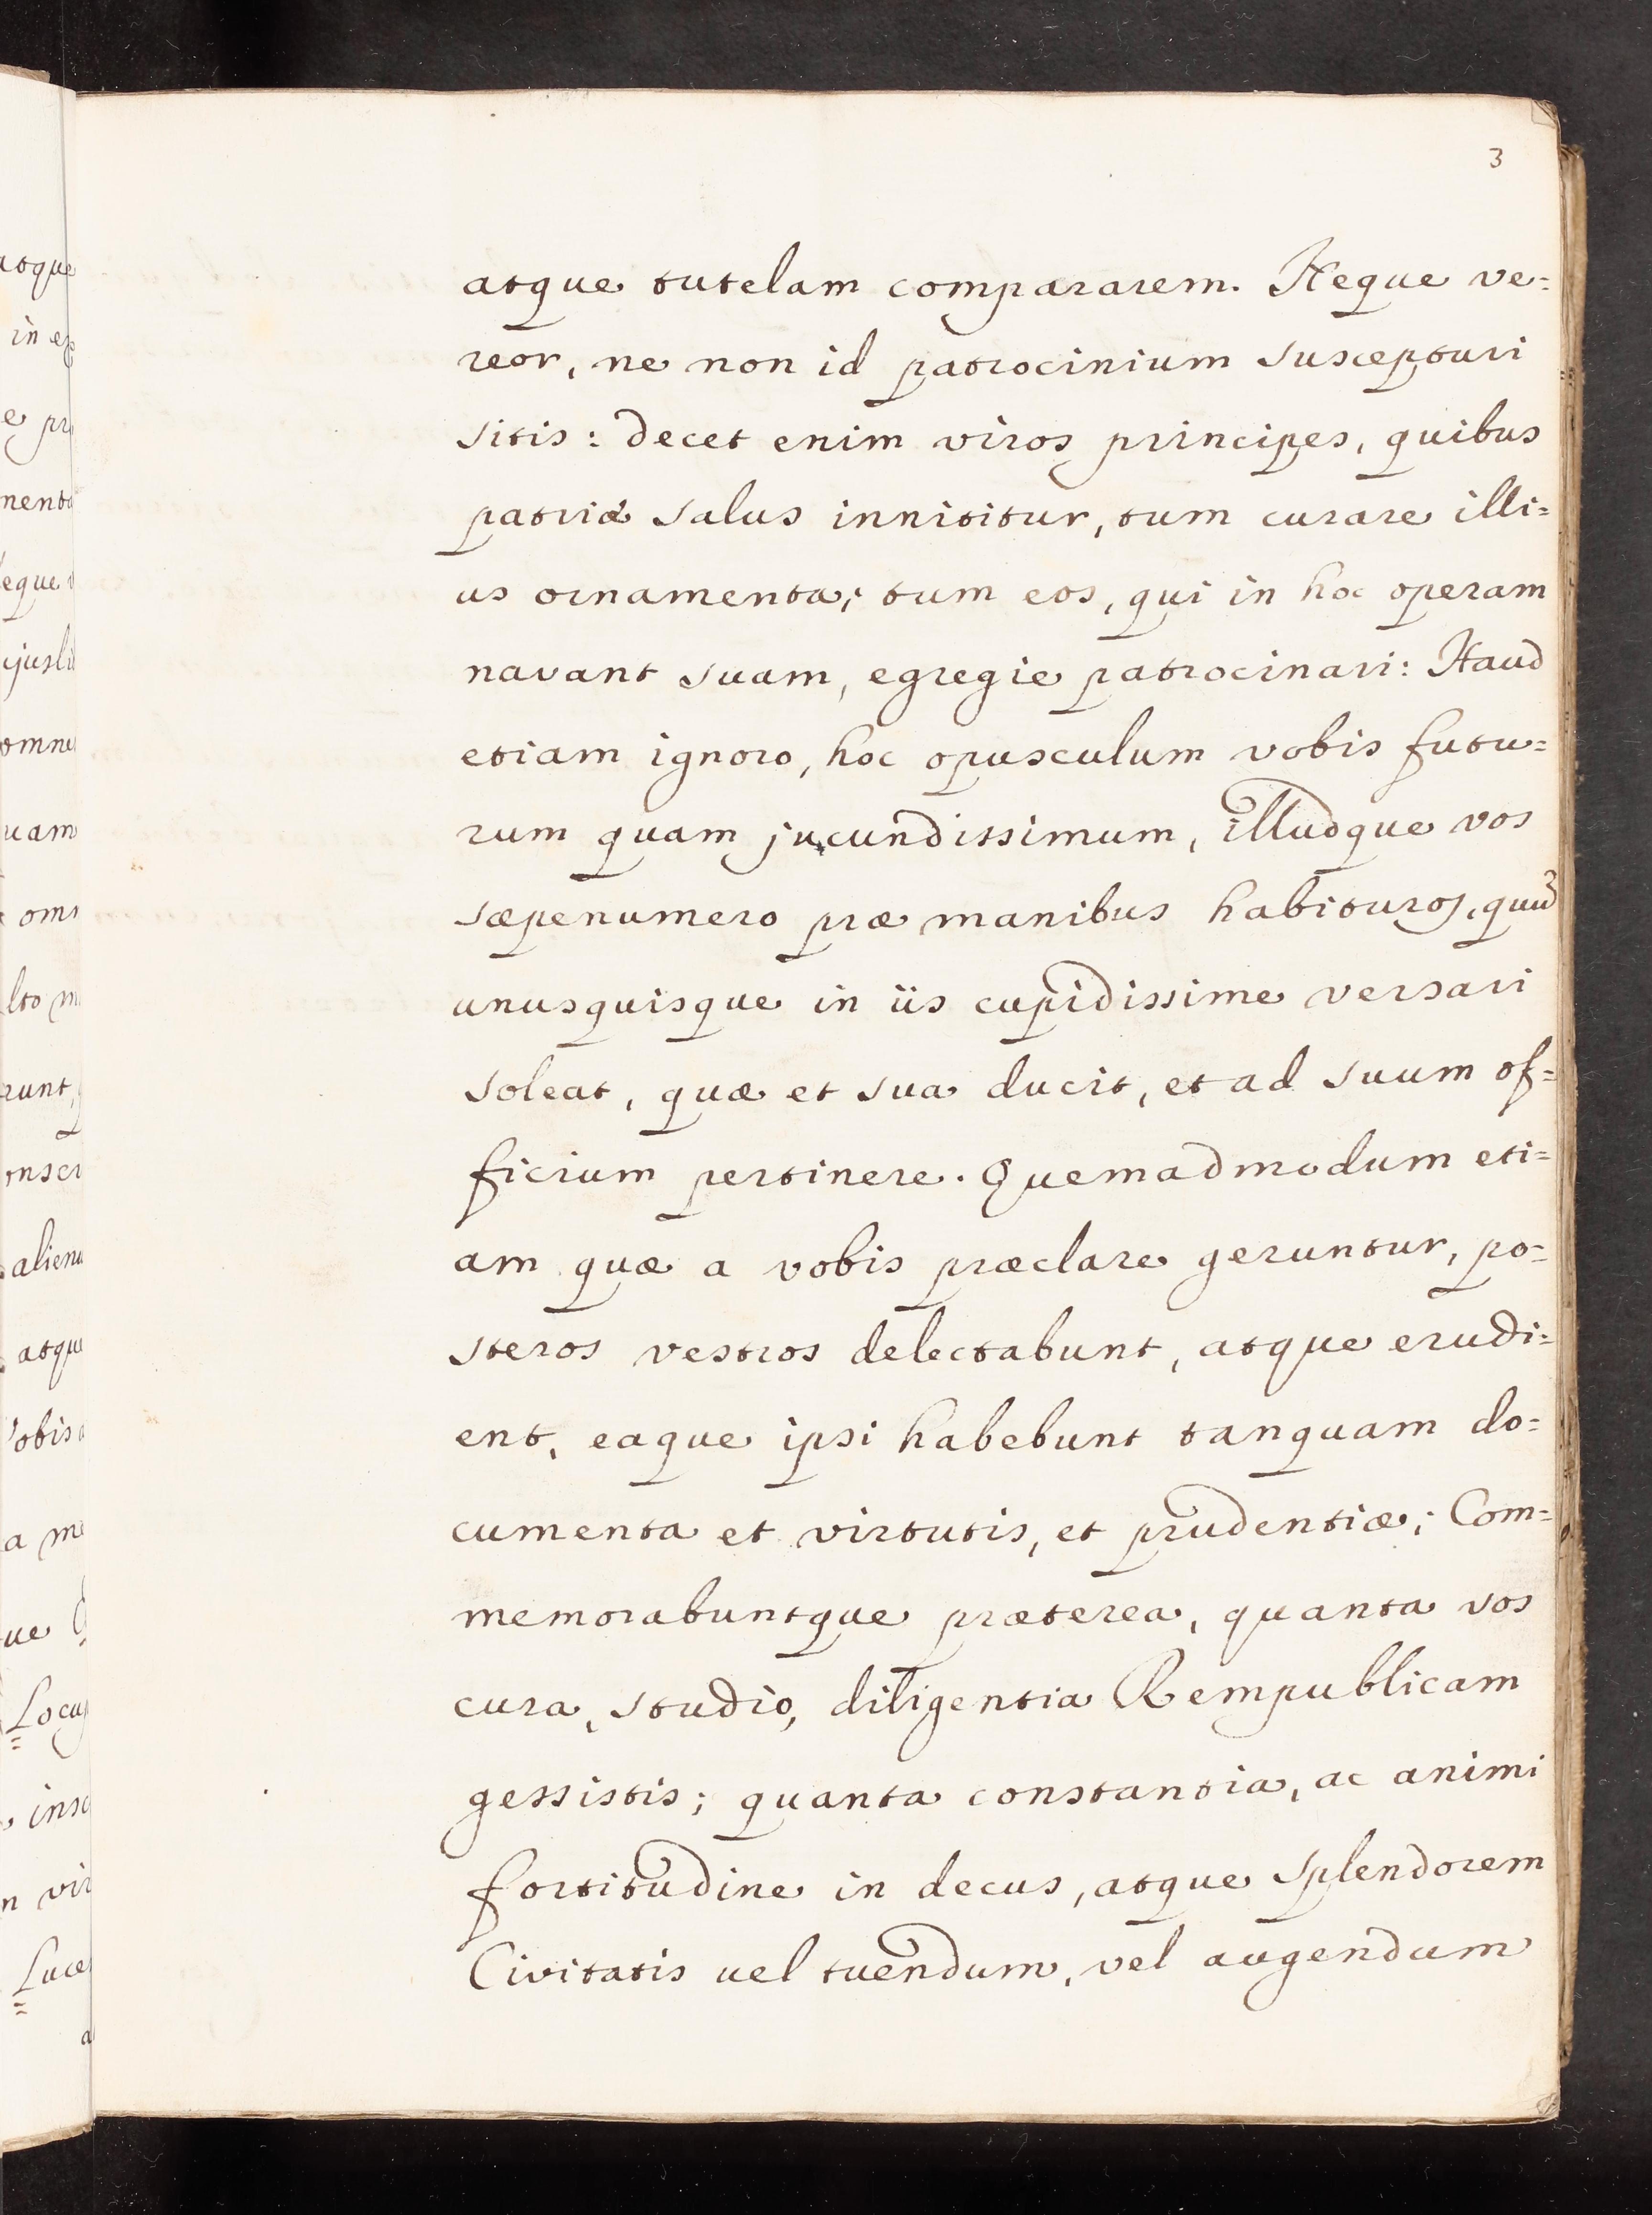 3
atque tutelam compararem. Neque ve=
reor, ne non id patrocinium suscepturi
sitis: decet enim viros principes, quibus
patriæ salus innititur, tum curare illi=
us ornamenta; tum eos, qui in hoc operam
navant suam, egregie patrocinari: Haud
etiam ignoro, hoc opusculum vobis futu=
rum quam jucundissimum, illudque vos
sæpenumero præ manibus habituros, quum
unusquisque in iis cupidissime versari
soleat, quæ et sua ducit, et ad suum of=
ficium pertinere. Quemadmodum eti=
am quæ a vobis præclare geruntur, po=
steros vestros delectabunt, atque erudi=
ent, eaque ipsi habebunt tanquam do=
cumenta et virtutis, et prudentiæ; Com=
memorabuntque præterea, quanta vos
cura, studio, diligentia Rempublicam
gessistis; quanta constantia, ac animi
fortitudine in decus, atque splendorem
Civitatis uel tuendum, vel augendum